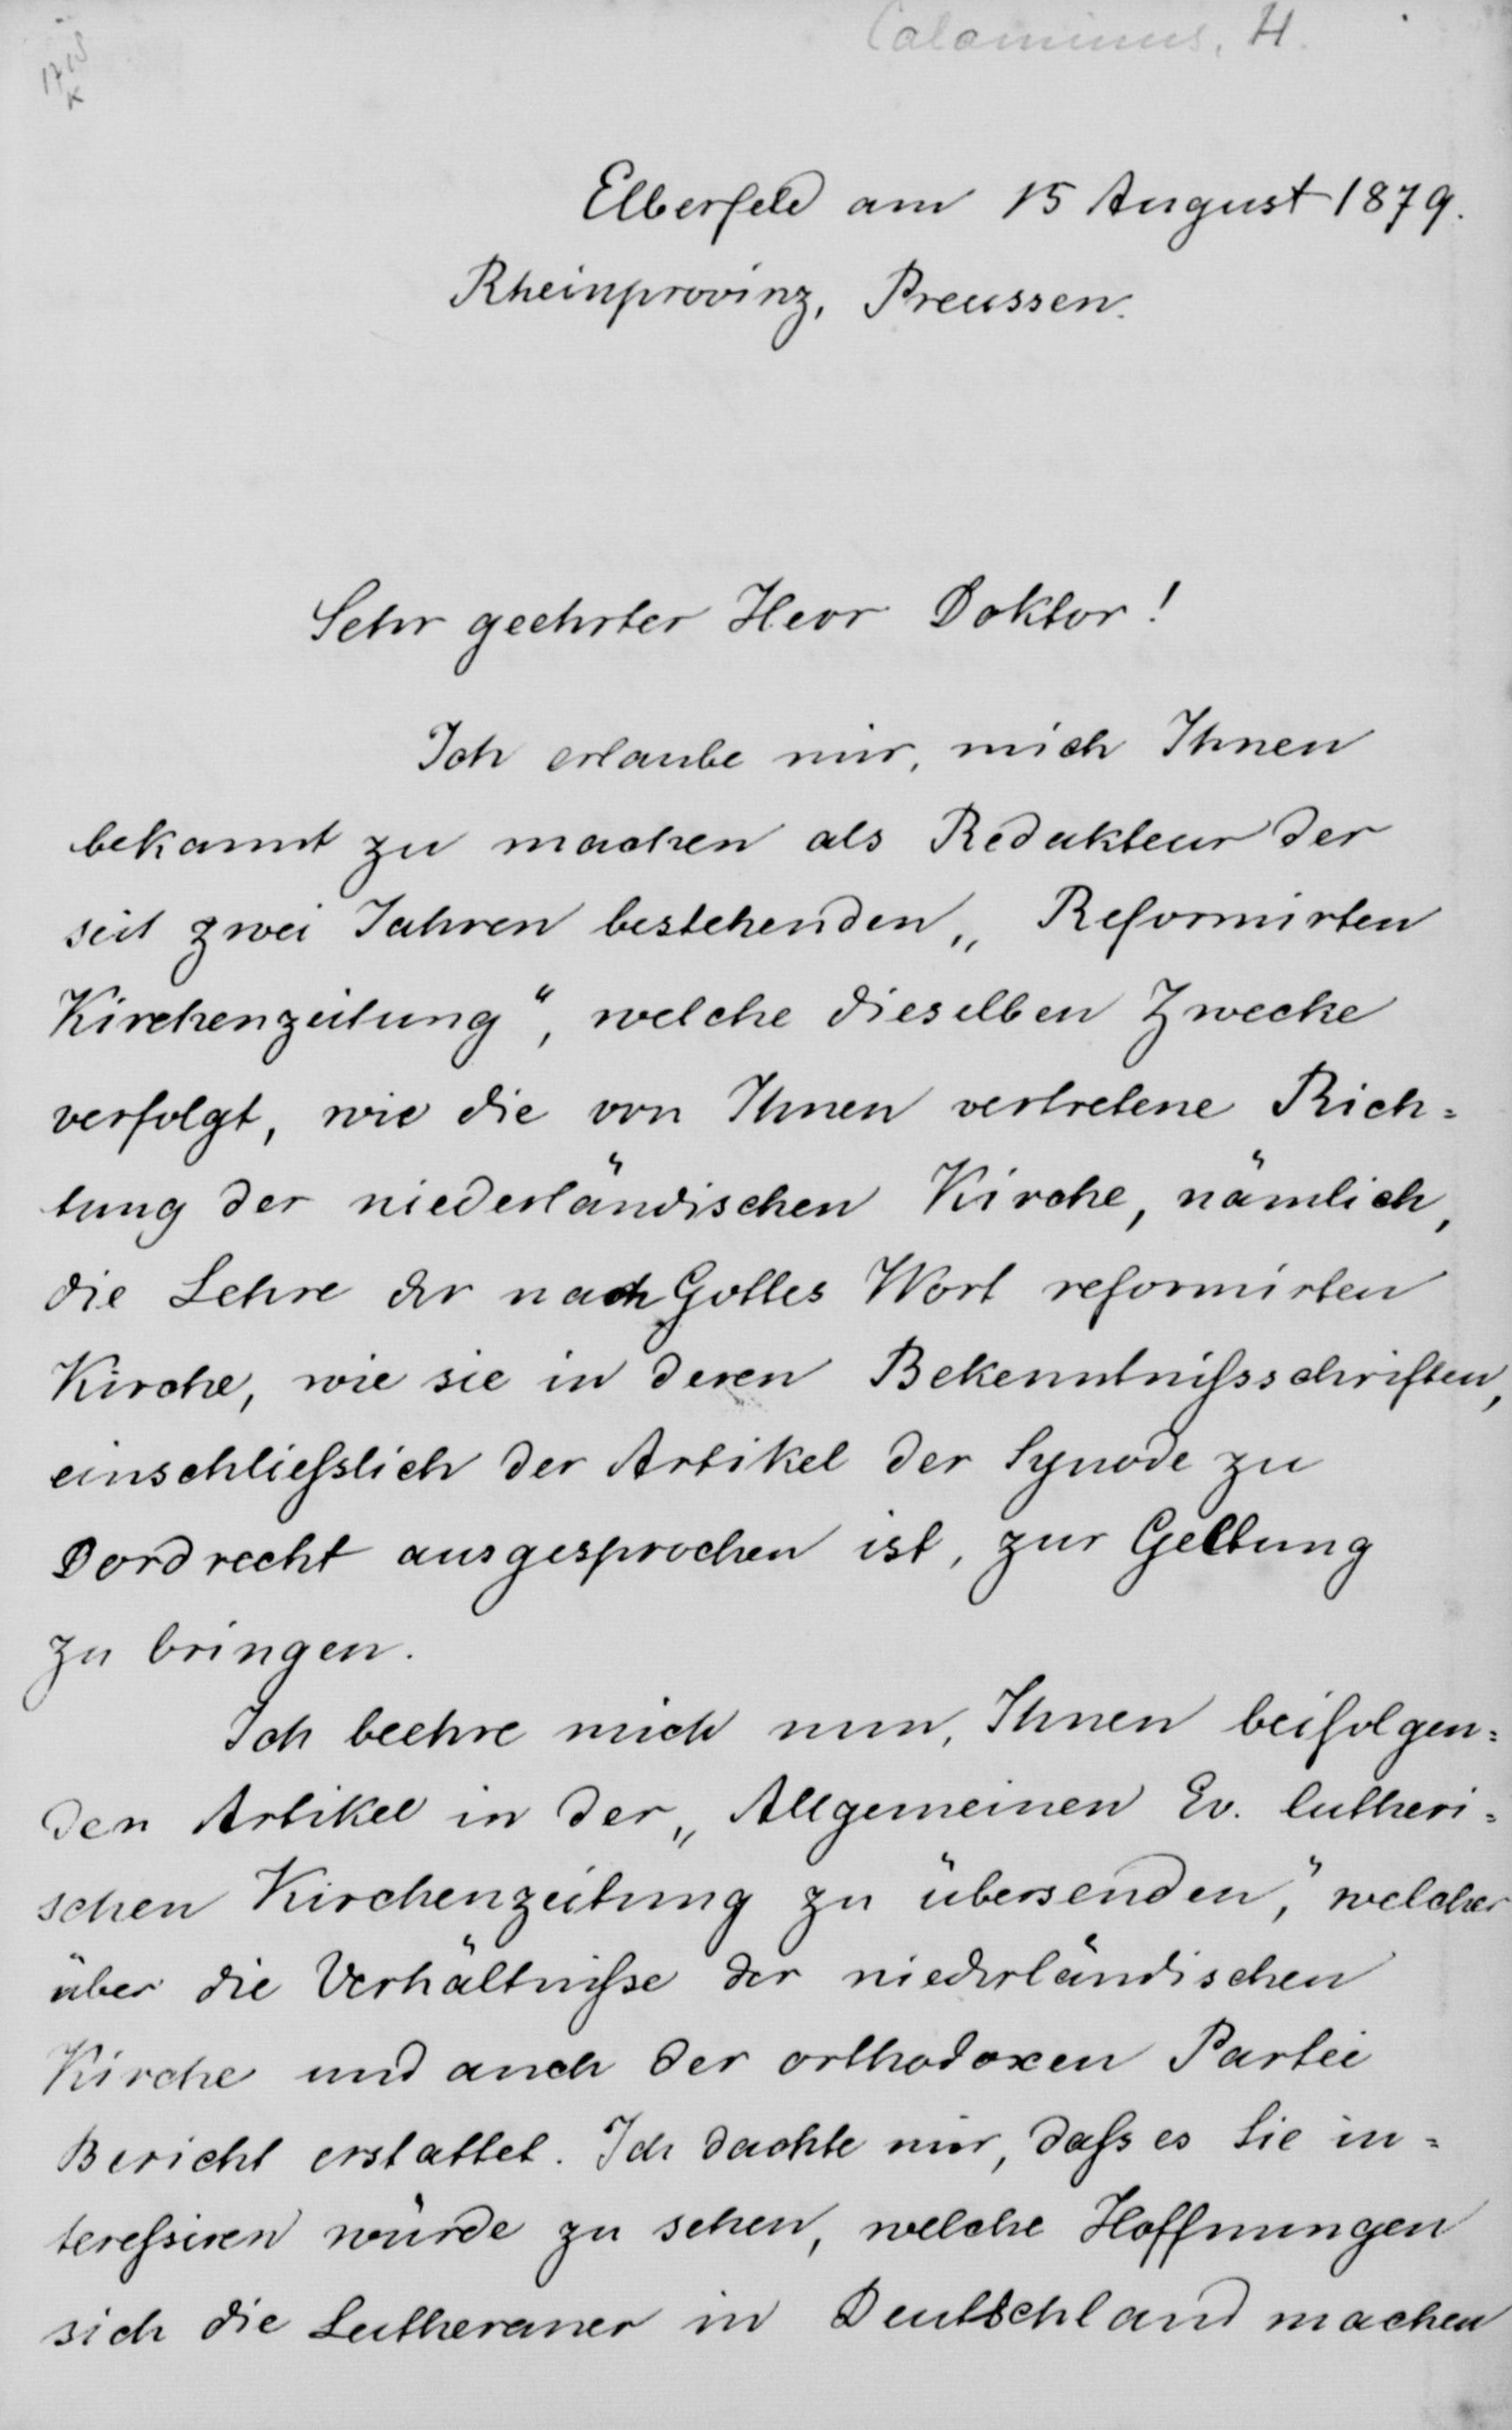 Calaminus, H.
1718
K
Elberfeld am 15 August 1879.
Rheinprovinz, Preussen.
Sehr geehrter Herr Doktor!
Ich erlaube mir, mich Ihnen
bekannt zu machen als Redakteur der
seit zwei Jahren bestehenden „Reformirten
Kirchenzeitung“, welche dieselben Zwecke
verfolgt, wie die von Ihnen vertretene Rich=
tung der niederländischen Kirche, nämlich,
die Lehre der nach Gottes Wort reformirten
Kirche, wie sie in deren Bekenntnißsschriften,
einschließslich der Artikel der Synode zu
Dordrecht ausgesprochen ist, zur Geltung
zu bringen.
Ich beehre mich nun, Ihnen beifolgen=
den Artikel in der „Allgemeinen Ev. lutheri=
schen Kirchenzeitung zu übersenden,“ welcher
über die Verhältniße der niederländischen
Kirche und auch der orthodoxen Partei
Bericht erstattet. Ich dachte mir, daß es Sie in=
tereßiren würde zu sehen, welche Hoffnungen
sich die Lutheraner in Deutschland machen